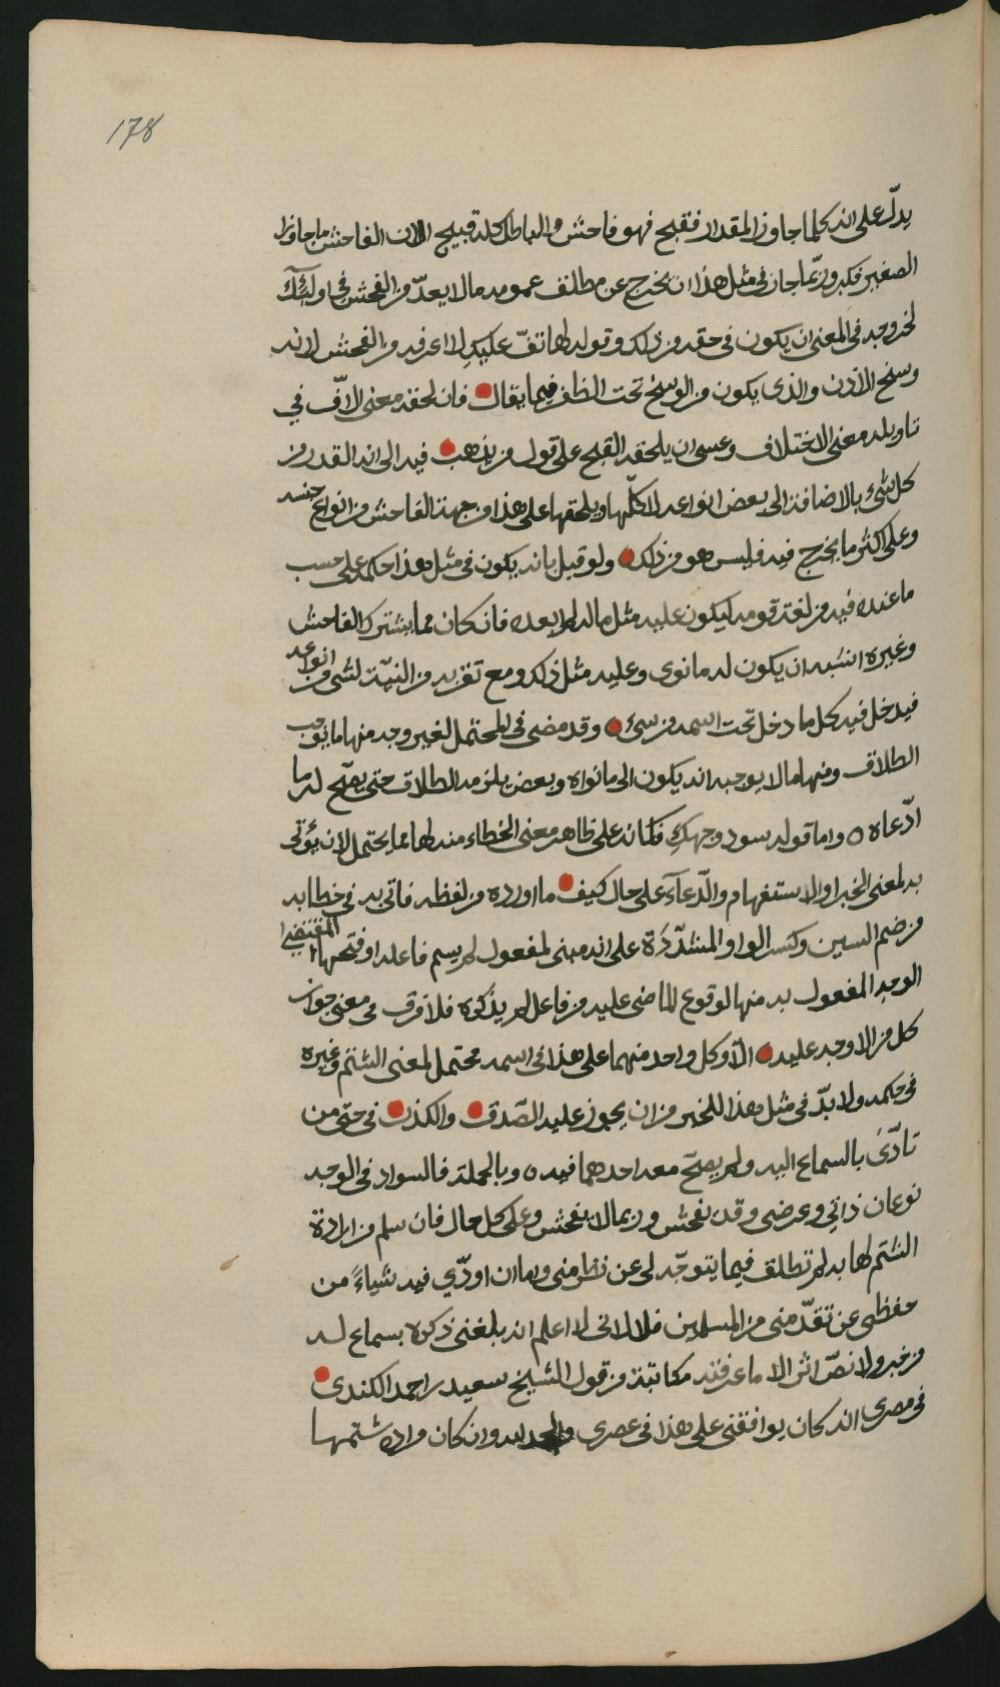 178
يدلّ على انه كلما جاوز المقدار فقبح فهو فاحش والباطل كله قبيح الا ان الفاحش ما جاوز
الصغير فكبر وربّما جاز في مثل هذا ان يخرج عن مطلق عمومه ما لا يعدّ من الفحش في اولئك
لخروجه في المعنى ان يكون في حقه من ذلك وقوله لها تفّ عليكِ لا اعرفه من الفحش لانه
وسخ الاذن والذي يكون من الوسخ تحت الظفر فيما يقال فان لحقه معنى الافّ في
تاويله معنى الاختلاف وعسى ان يلحقه القبح على قول من يذهب فيه الى انه القذر من
كل شيء بالاضافة الى بعض انواعه لا كلّها ويلحقها على هذا من جهة الفاحش من انواع جنسه
وعلى اكثر ما يخرج فيه فليس هو من ذلك ولو قيل بانه يكون في مثل هذا حكمه على حسب
ما عنده فيه من لغة قومه ليكون عليه مثل ما له لم ابعده فان كان مما يشترك الفاحش
وغيره اشبه ان يكون له ما نوى وعليه مثل ذلك ومع تعريه من النيّة لشيء من انواعه
فيدخل فيه كل ما دخل تحت اسمه من شيء وقد مضى في المحتمل لغير وجه منها ما يوجب
الطلاق ومنها ما لا يوجبه انه يكون الى ما نواه وبعض يلزمه الطلاق حتى يصّح له ما
ادّعاه ٥ واما قوله سود وجهكِ فكانه على ظاهر معنى الخطاء منه لها مما يحتمل لان يُؤتى
به لمعنى الخبر او الاستفهام والدّعآء على حال كيف ما اورده من لفظه فاتى به في خطابه
من ضم السين وكسر الواو المشدّدة على انه مبنى لمفعول لم يسم فاعله او فتحها المقتضى
الوجه المفعول به منها لوقوع الماضى عليه من فاعل لم يذكره فلا فرق في معنى جواز
كل من الاوجه عليه الّا وكل واحد منهما على هذا في اسمه محتمل لمعنى الشتم وغيره
في حكمه ولا بدّ في مثل هذا للخبر من ان يجوز عليه الصّدق والكذب في حقّ من
تادّىَ بالسماع اليه ولم يصّح معه احدهما فيه ٥ وبالجملة فالسواد في الوجه
نوعان ذاتي وعرضي وقد يفحش وربما لا يفحش وعلى كل حال فان سلم من ارادة
الشتم لها به لم تطلق فيما يتوجّه لى عن نظر منى واما ان اودّي فيه شياءً من
حفظى عن تقدّمنى من المسلمين فلا لانى لا اعلم انه بلغنى ذكره بسماع له
من خبر ولا نصّ اثر الا ما عرفته مكاتبة من قول الشيخ سعيد بن احمد الكندى
في مصرى انه كان يوافقنى على هذا في عصرى والحمد لله وان كان مراده شتمها